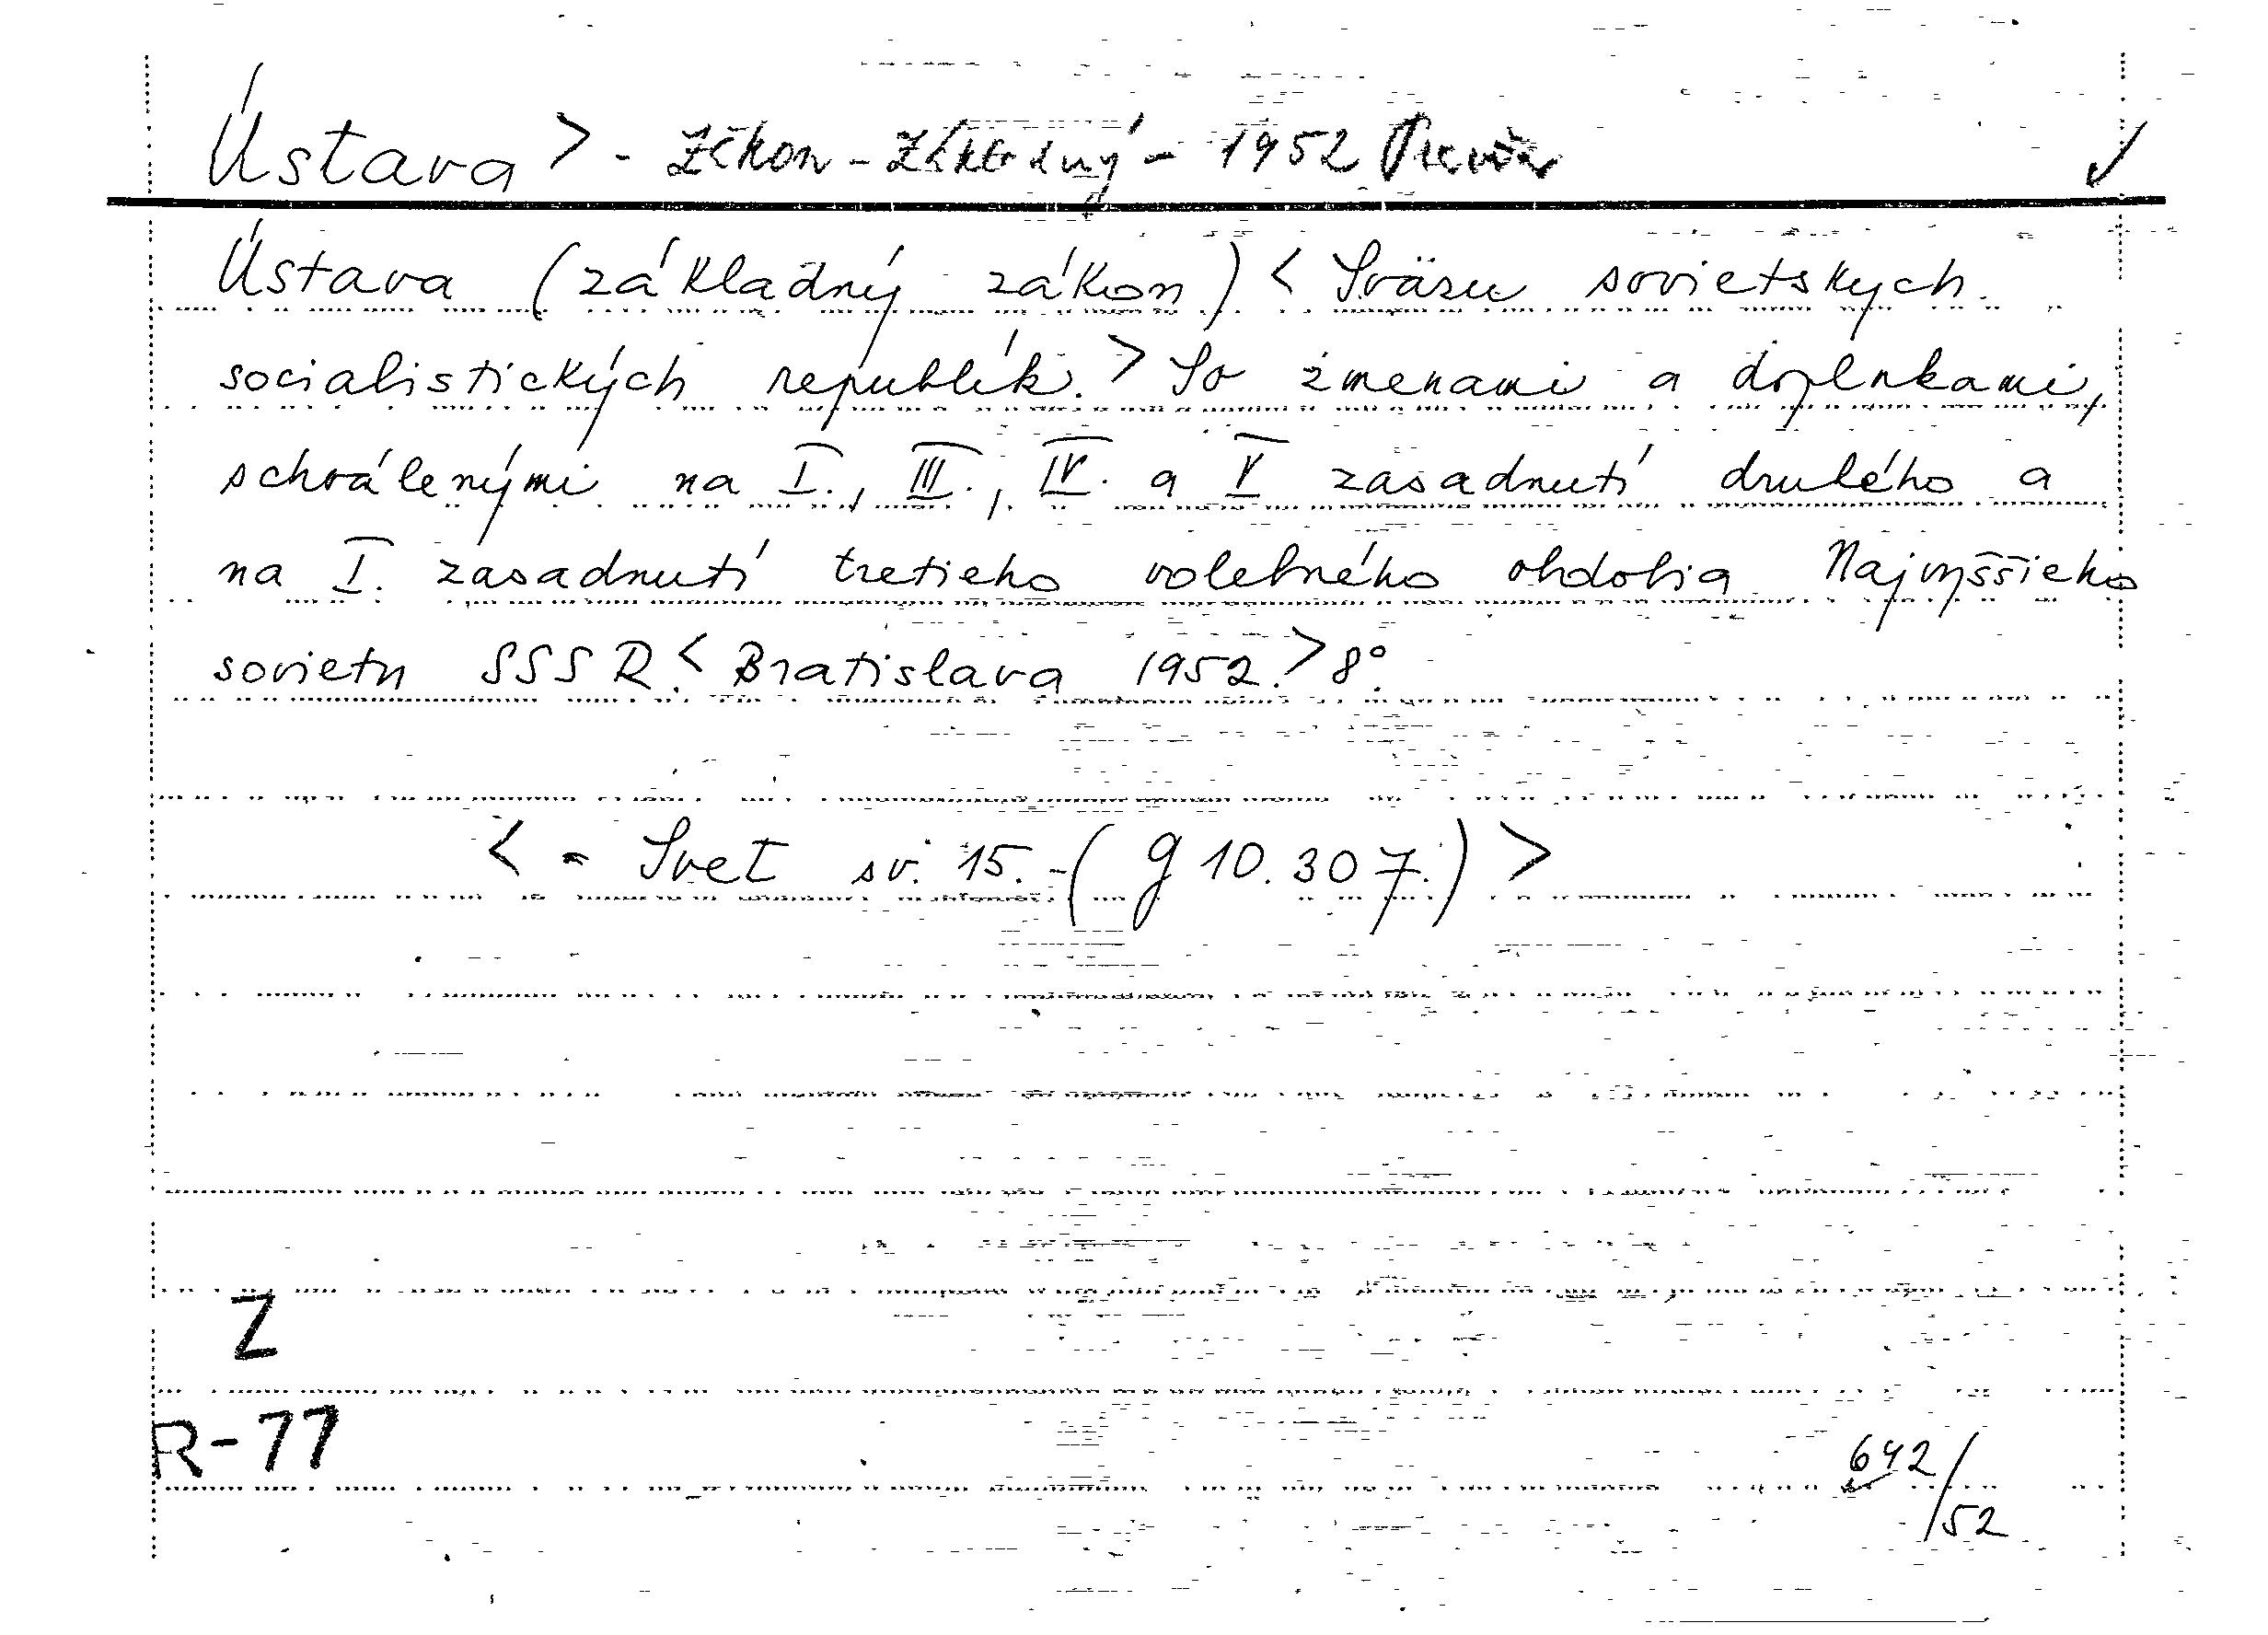 Ústava > - Zákon - Základný - 1952 ✓
Ústava (základný zákon) < Sväzu sovietskych
socialistických republík. > So zmenami a doplnkami,
schválenými na I., III., IV. a V zasadnutí druhého a
na I. zasadnutí tretieho volebného obdobia Najvyššieho
sovietu SSSR. < Bratislava 1952. > 8°.
< = Svet sv. 15. - (g 10.307.) >
Z
R-77
642/52